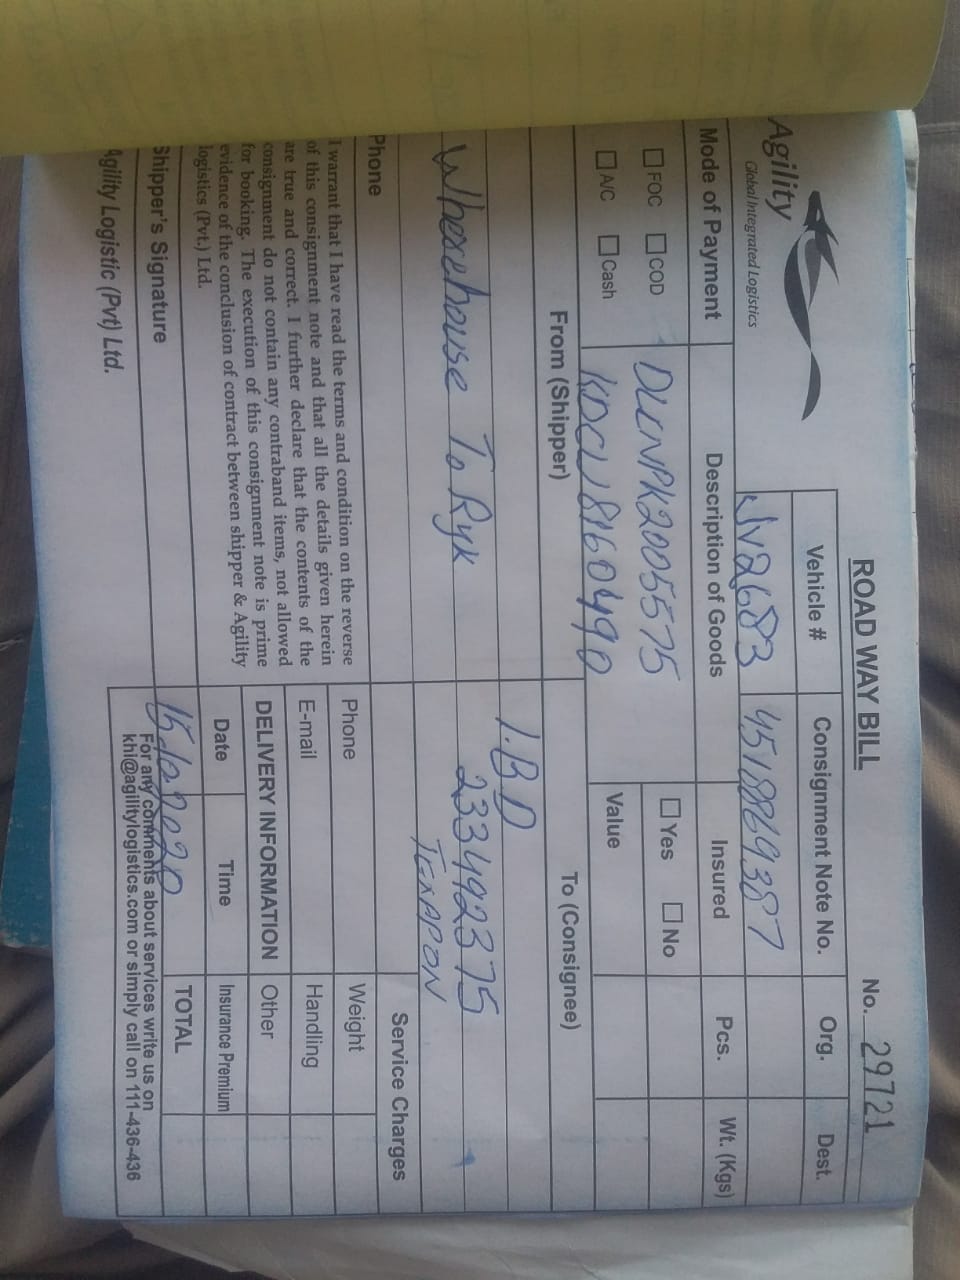 ROAD WAY BILL
No. 29721
Agility
Global Integrated Logistics
Vehicle #
Consignment Note No.
Org.
Dest.
JV2683
4518869387
Mode of Payment
Description of Goods
Insured
Pcs.
Wt. (Kgs)
FOC
COD
DLCNPK2005575
Yes
No
A/C
Cash
KDCU8160490
Value
From (Shipper)
To (Consignee)
I.B.D
Wherehouse To Ryk
233492375
TEXAPON
Phone
Service Charges
I warrant that I have read the terms and condition on the reverse
of this consignment note and that all the details given herein
are true and correct. I further declare that the contents of the
consignment do not contain any contraband items, not allowed
for booking. The execution of this consignment note is prime
evidence of the conclusion of contract between shipper & Agility
logistics (Pvt.) Ltd.
Phone
Weight
E-mail
Handling
DELIVERY INFORMATION
Other
Date
Time
Insurance Premium
15-10-2020
TOTAL
Shipper's Signature
For any comments about services write us on
khi@agilitylogistics.com or simply call on 111-436-436
Agility Logistic (Pvt) Ltd.